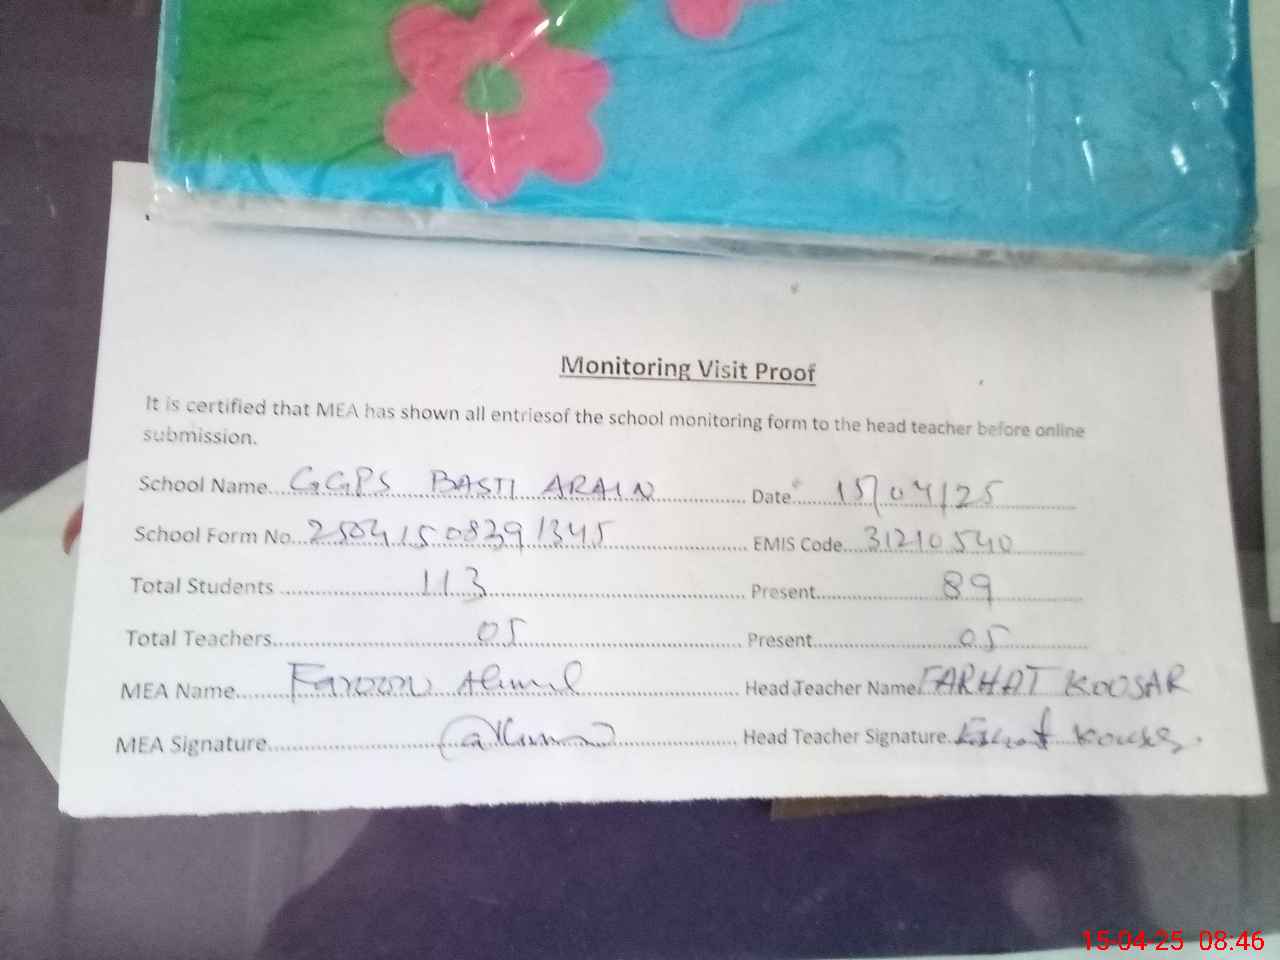 Monitoring Visit Proof
It is certified that MEA has shown all entriesof the school monitoring form to the head teacher before online
submission.
School Name GGPS BASTI ARAIN Date 15/04/25
School Form No. 25041508391345 EMIS Code 31210540
Total Students 113 Present 89
Total Teachers 05 Present 05
MEA Name Ahmed Head Teacher Name FARHAT KOOSAR
MEA Signature Head Teacher Signature
15-04-25 08:46